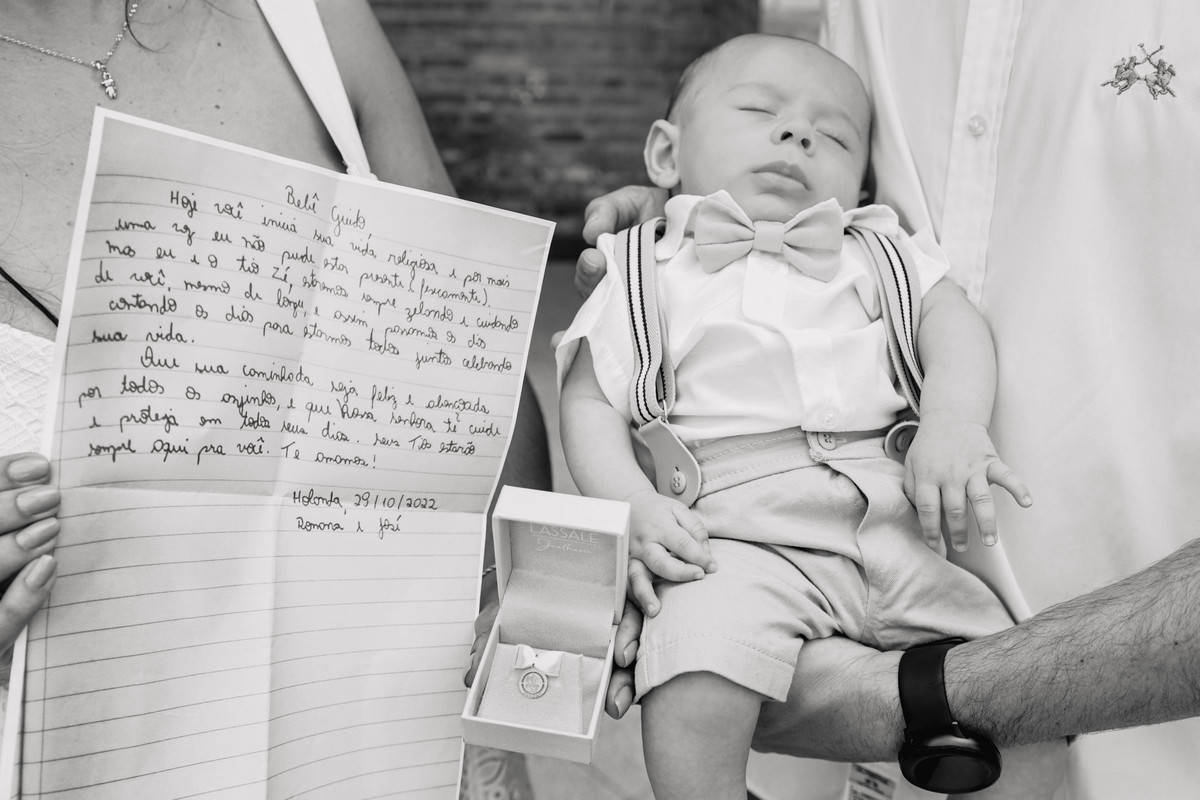 Bebê Guido,
Hoje você inicia sua vida religiosa e por mais
uma vez eu não pude estar presente (fisicamente).
mas eu e o tio Zé, estamos sempre zelando e cuidando
de você, mesmo de longe, e assim passamos os dias
contando os dias para estarmos todos juntos celebrando
sua vida.
Que sua caminhada seja feliz e abençoada
por todos os anjinhos, e que Nossa senhora te cuide
e proteja em todos seus dias. seus Tios estarão
sempre aqui pra você. Te amamos!
Holanda, 29/10/2022
Ramona e José
LASSALE